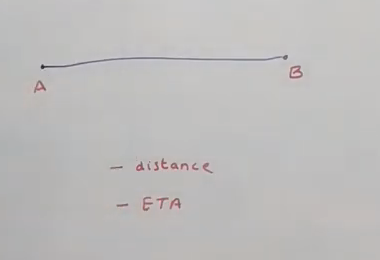 A
B
- distance
- ETA